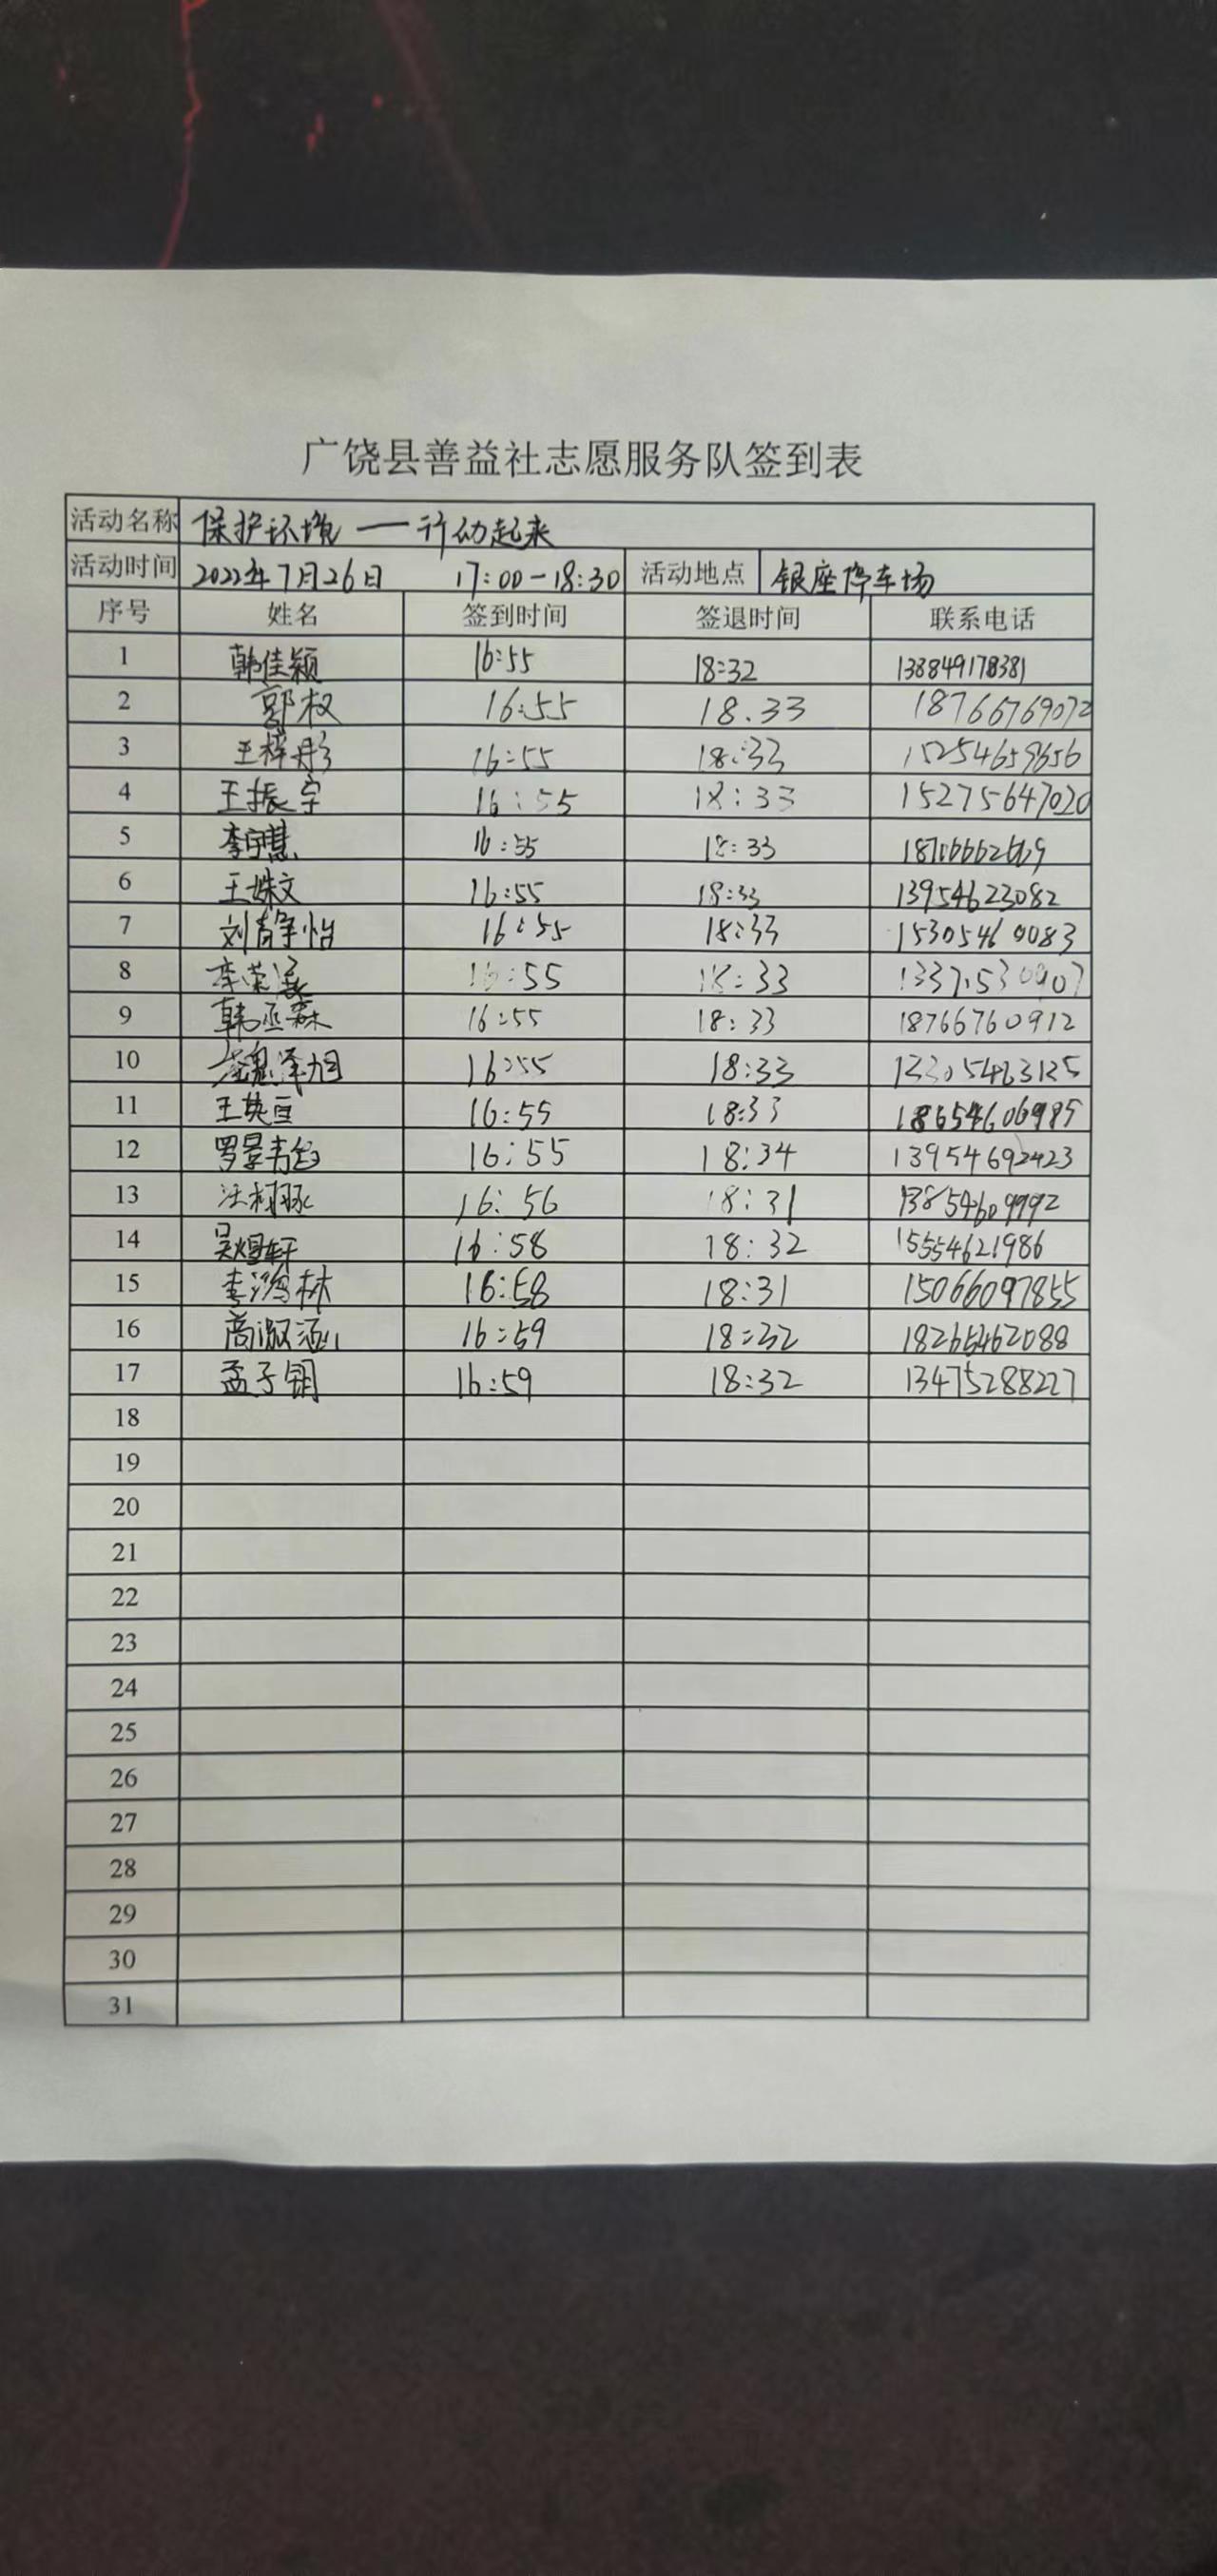 广饶县善益社志愿服务队签到表
活动名称 保护环境——行动起来
活动时间 2022年7月26日 17:00-18:30 活动地点 银座停车场
序号 姓名 签到时间 签退时间 联系电话
1 韩佳颖 16:55 18:32
2 郭权 16:55 18.33 18766769072
3 王梓彤 16:55 18:33 15254659656
4 王振宇 16:55 18:33 15275647020
5 李宇慧 16:55 18:33
6 王姝文 16:55 18:33 13954623082
7 刘静怡 16:55 18:33 15305460083
8 16:55 18:33
9 韩丞霖 16:55 18:33 18766760912
10 16:55 18:33 13305463125
11 王英亘 16:55 18:33 18654606985
12 16:55 18:34 13954692423
13 16:56 18:31 13854609992
14 吴煜轩 16:58 18:32 15554621986
15 李鸿林 16:58 18:31 15066097855
16 商淑涵 16:59 18:32 18265462088
17 孟子钥 16:59 18:32 13475288227
18
19
20
21
22
23
24
25
26
27
28
29
30
31